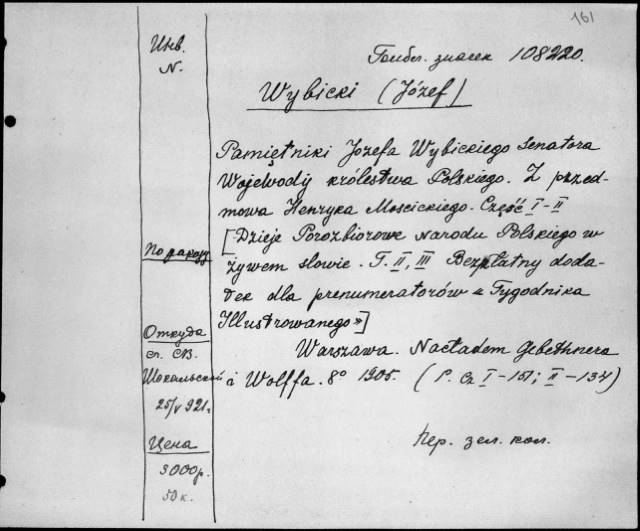 161
Инв.
N.
значек 108220.
Wybicki (Józef)
Pamiętniki Józefa Wybickiego Senatora
Wojewody królestwa Polskiego. Z przed-
mowa Henryka Moscickiego. Część I-II
[Dzieje Porozbiorowe Narodu Polskiego w
żywem słowie. T. II, III Bezpłatny doda-
tek dla prenumeratorów « Tygodnika
Illustrowanego»]
Warszawa. Nactadem Gebethnera
i Wolffa. 8° 1905. (P. Cz I-151; II-134)
По
Откуда
ст. СВ.
25/V 921.
Цена
3000р.
50к.
Пер. зел. кол.